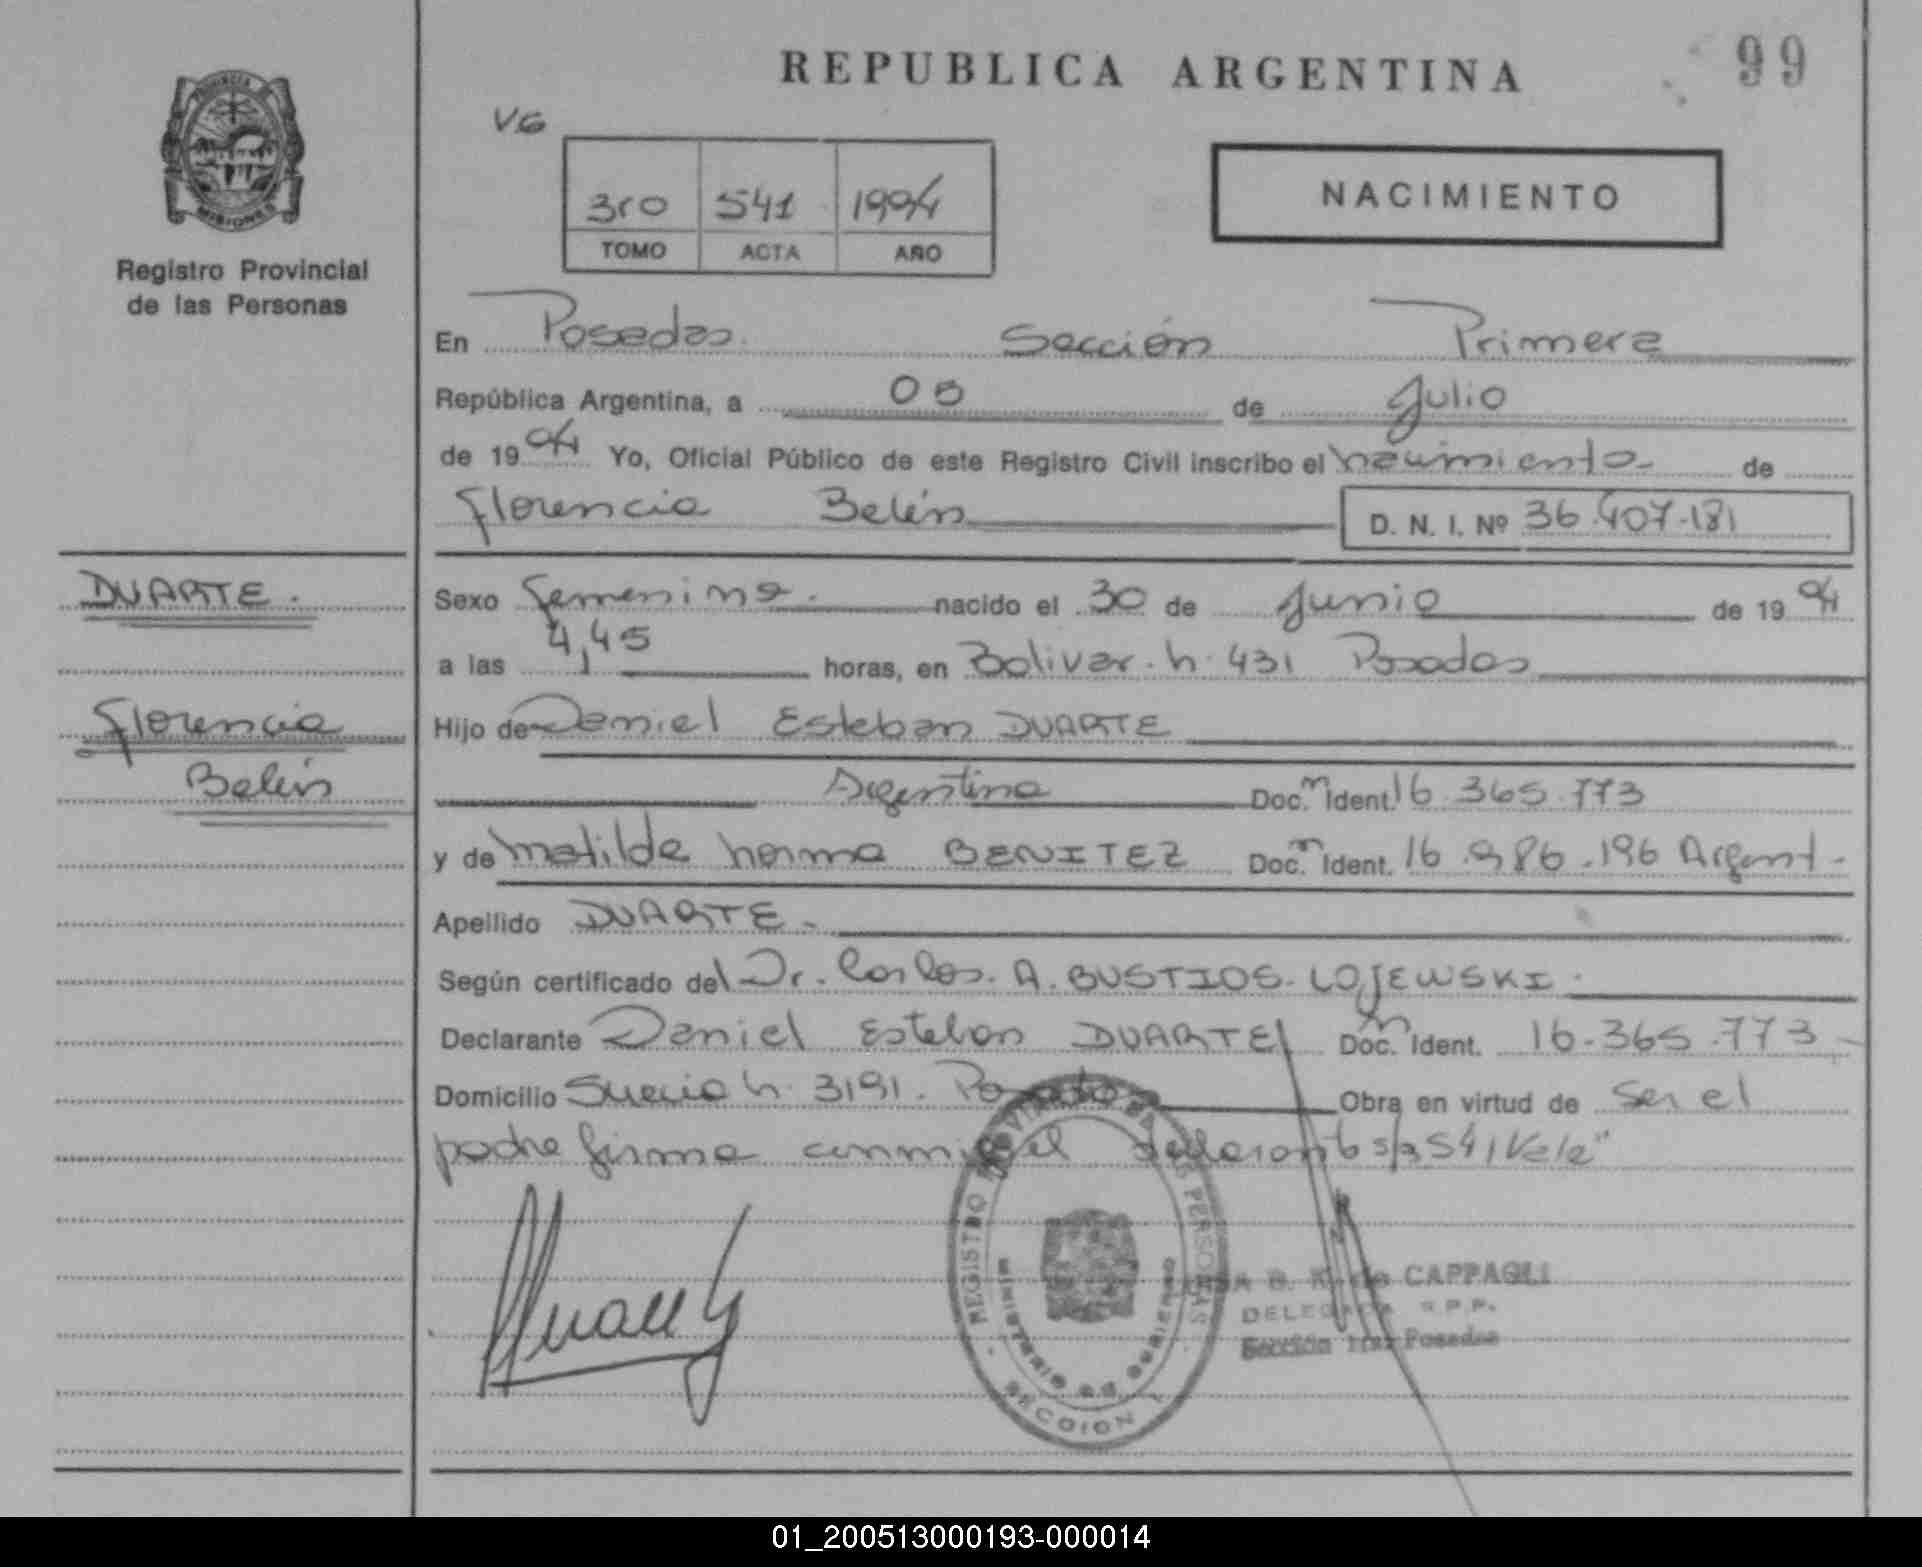 REPUBLICA ARGENTINA
99
VG
3ro 541 1994
TOMO ACTA AÑO
NACIMIENTO
PROVINCIA
MISIONES
Registro Provincial
de las Personas
En Posadas Sección Primera
República Argentina, a 05 de Julio
de 1994 Yo, Oficial Público de este Registro Civil inscribo el nacimiento de
Florencia Belén D. N. I. Nº 36.407.181
DUARTE.
Florencia
Belén
Sexo femenino. nacido el 30 de Junio de 1994
a las 4,45 horas, en Bolivar. n. 431 Posadas
Hijo de Daniel Esteban DUARTE
Argentina Doc. Ident. 16.365.773
y de Matilde norma BENITEZ Doc. Ident. 16.986.196 Argent.
Apellido DUARTE.
Según certificado del Dr. Carlos. A. BUSTIOS. LOJEWSKI.
Declarante Daniel Esteban DUARTE Doc. Ident. 16.365.773
Domicilio Suecia n. 3191. Posadas Obra en virtud de ser el
padre firma conmigo el declarante s/r 541 Vale"
REGISTRO PROVINCIAL DE LAS PERSONAS
MINISTERIO DE GOBIERNO
SECCION 1
B. K. de CAPPAGLI
DELEGADA R.P.P.
Sección 1ra. Posadas
01_200513000193-000014